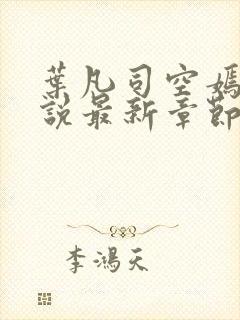 葉凡司空嫣
說最新章節
李鴻天